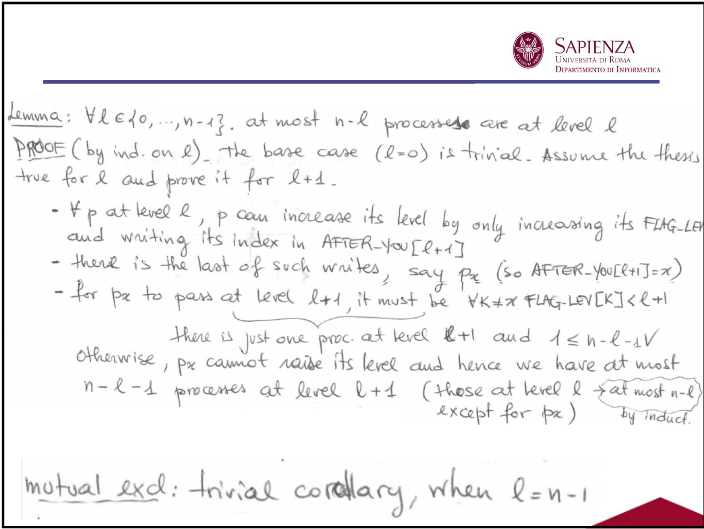 SAPIENZA
UNIVERSITÀ DI ROMA
DIPARTIMENTO DI INFORMATICA
Lemma: ∀ℓ∈{0, ..., n-1}. at most n-ℓ processes are at level ℓ
PROOF (by ind. on ℓ). The base case (ℓ=0) is trivial. Assume the thesis
true for ℓ and prove it for ℓ+1.
- ∀p at level ℓ, p can increase its level by only increasing its FLAG_LEV
and writing its index in AFTER_YOU[ℓ+1]
- there is the last of such writes, say px (so AFTER_YOU[ℓ+1]=x)
- for px to pass at level ℓ+1, it must be ∀K≠x FLAG_LEV[K]<ℓ+1
there is just one proc. at level ℓ+1 and 1 ≤ n-ℓ-1 √
otherwise, px cannot raise its level and hence we have at most
n-ℓ-1 processes at level ℓ+1 (those at level ℓ → at most n-ℓ
except for px) by induct.
mutual excl: trivial corollary, when ℓ=n-1